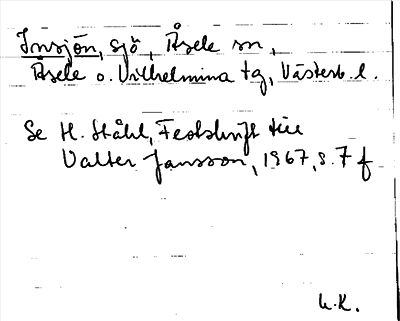 Insjön, sjö, Åsele sn,
Åsele o. Vilhelmina tg, Västerb. l.
Se H. Ståhl, Festskrift till
Valter Jansson, 1967, s. 7 f
U.K.